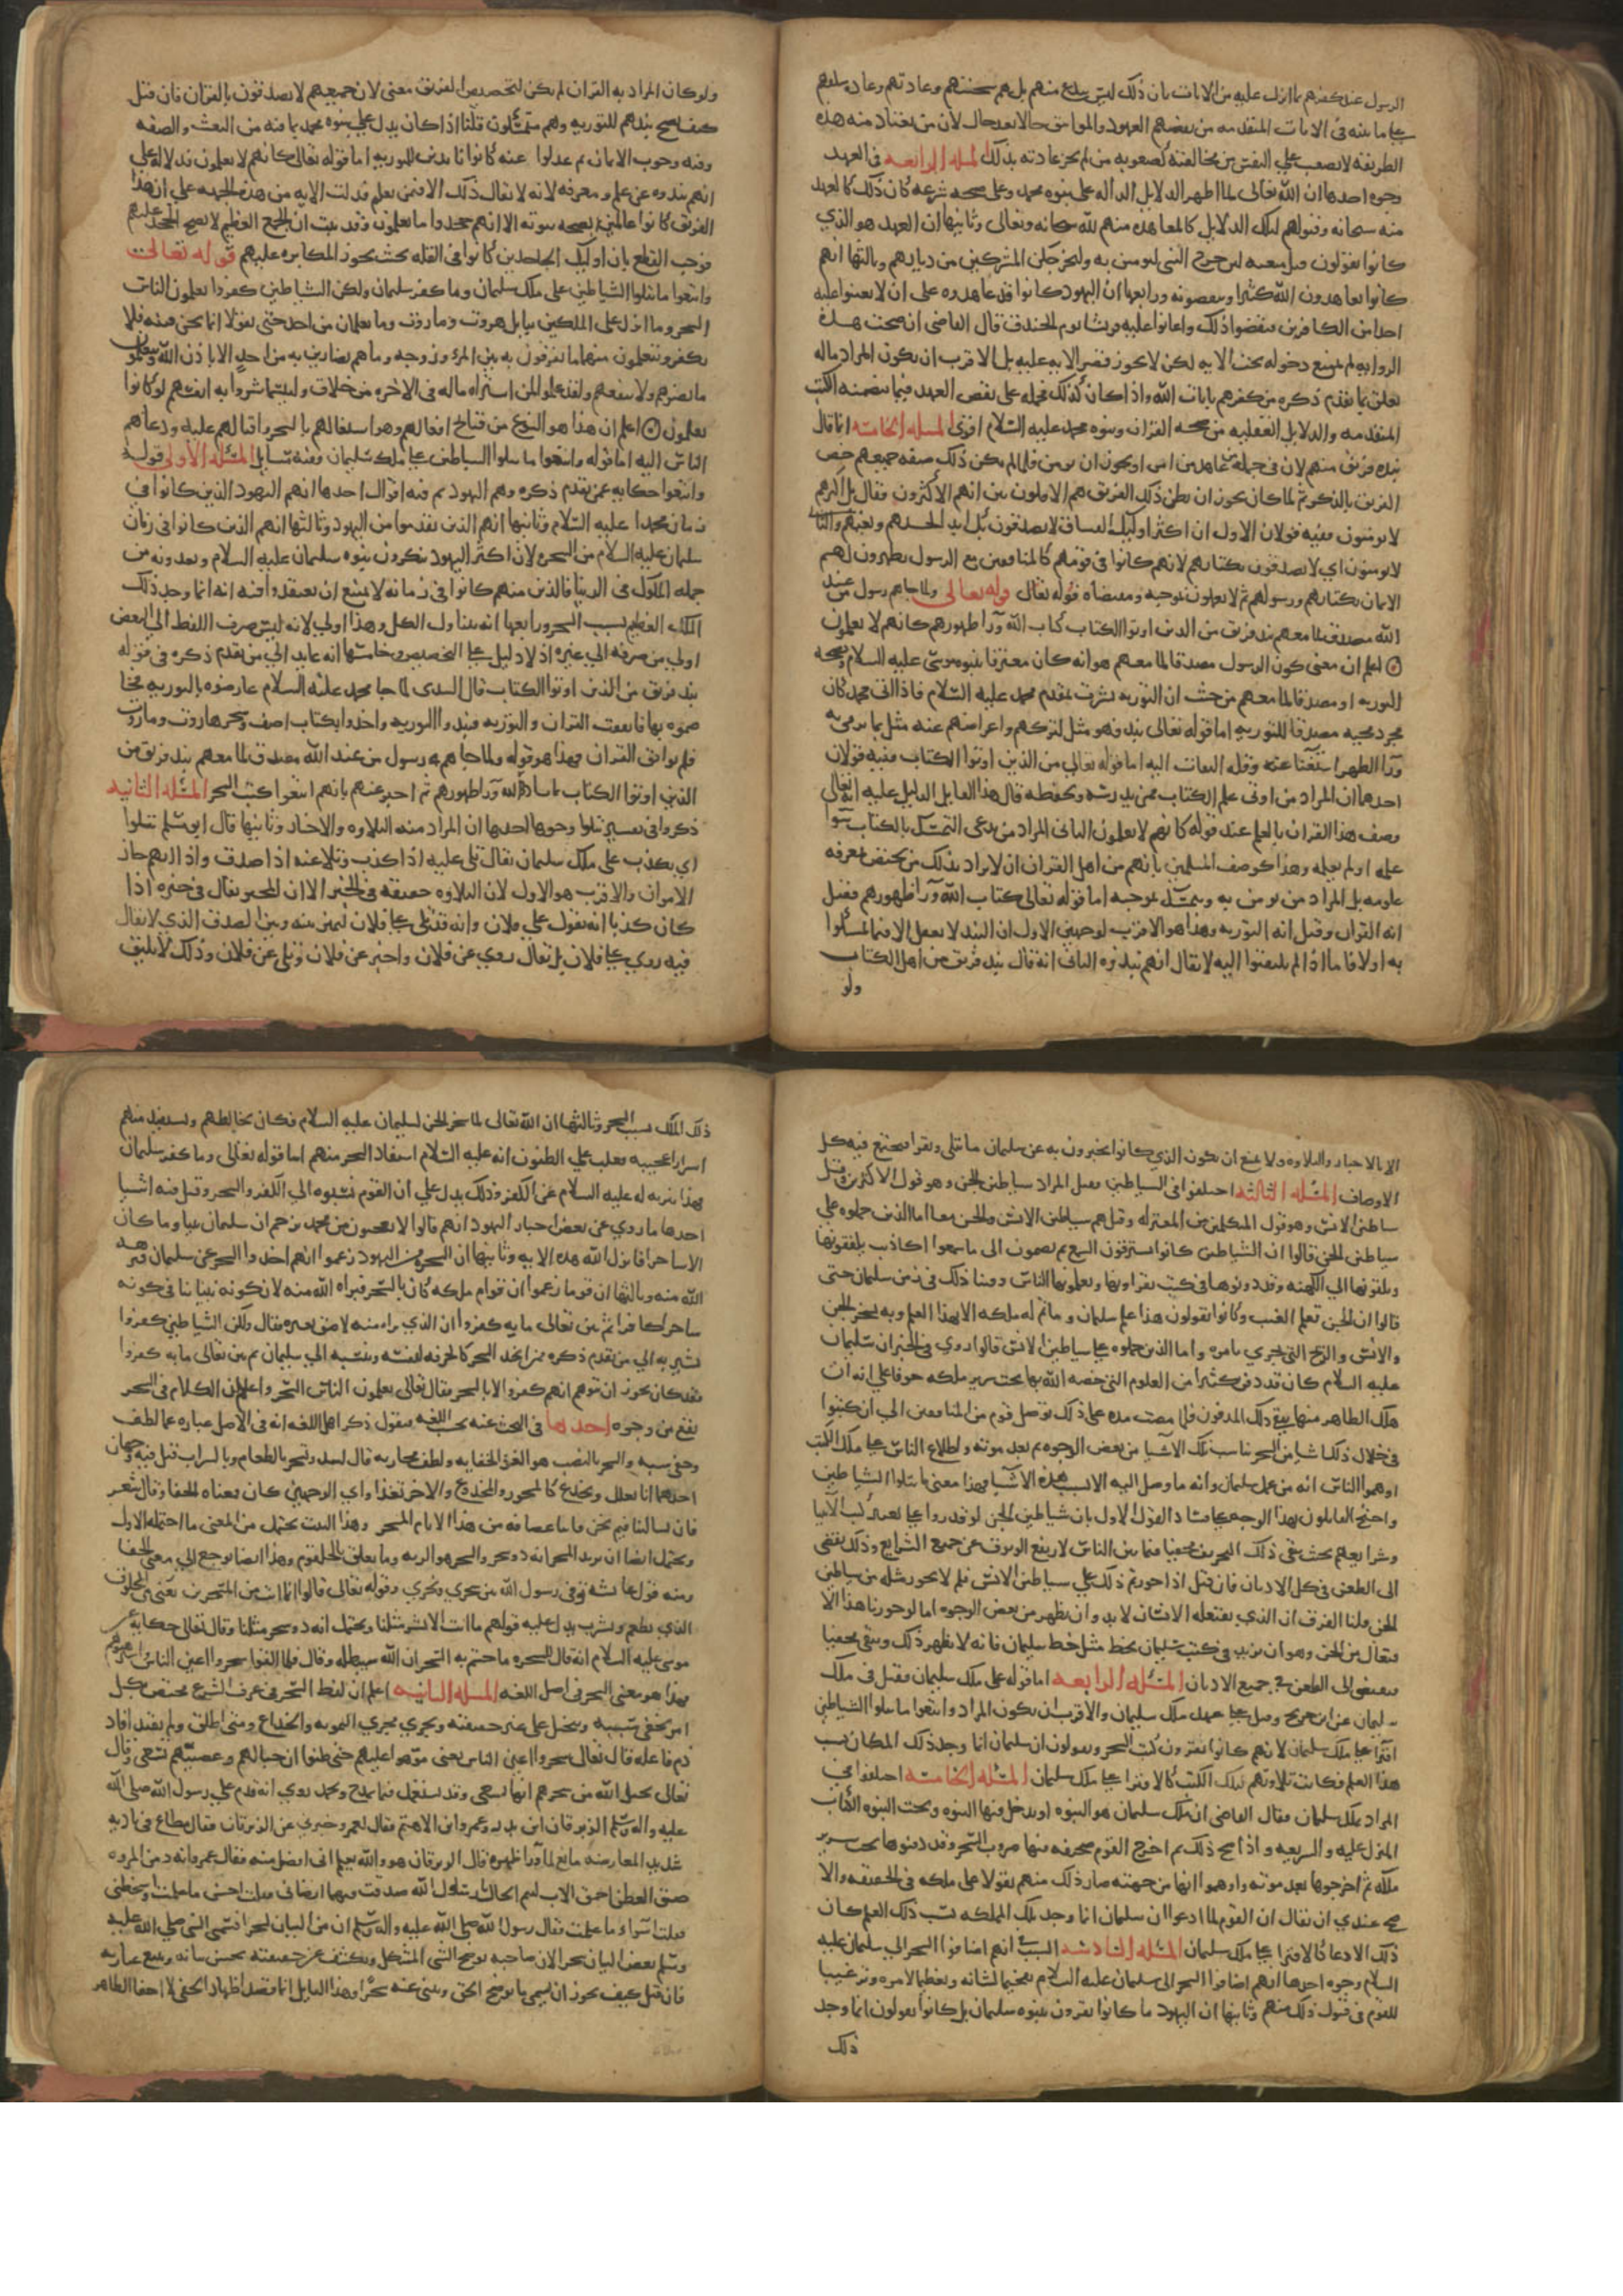 الرسول عند كفرهم بما انزل عليه من الايات بان ذلك ليس ببدع منهم بل هو سجيتهم وعادتهم وعادة سلفهم
على ما بينه في الايات المتقدمه من نقضهم العهود والمواثيق حالا بعد حال لان من يعتاد منه هذه
الطريقه لا يصعب على النفس من مخالفته كصعوبه من لم تجر عادته بذلك المسله الرابعه في العهد
وجوه احدها ان الله تعالى لما اظهر الدلايل الداله على نبوه محمد وعلى صحه شرعه كان ذلك كالعهد
منه سبحانه وقبولهم لتلك الدلايل كالمعاهده منهم لله سبحانه وتعالى وثانيها ان العهد هو الذي
كانوا يقولون قبل مبعثه لين خرج النبي لنومنن به ولنخرجن المشركين من ديارهم وثالثها انهم
كانوا يعاهدون الله كثيرا وينقضونه ورابعها ان اليهود كانوا قد عاهدوه على ان لا يعينوا عليه
احدا من الكافرين فنقضوا ذلك واعانوا عليه قريشا يوم الخندق قال القاضي ان صحت هذه
الروايه لم يمتنع دخوله تحت الايه لكن لا يجوز قصر الايه عليه بل الاقرب ان يكون المراد ماله
تعلق بما تقدم ذكره من كفرهم بايات الله واذا كان كذلك فحمله على نقض العهد فيما تضمنته الكتب
المتقدمه والدلايل العقليه من صحه القران ونبوه محمد عليه السلام اقوى المسله الخامسه انما قال
نبذه فريق منهم لان في جمله من عاهد من امن او يجوز ان يومن فلما لم يكن ذلك صفه جميعهم خص
الفريق بالذكر ثم لما كان يجوز ان يظن ذلك الفريق هم الاقلون بين انهم الاكثرون فقال بل اكثرهم
لا يومنون ففيه قولان الاول ان اكثر اوليك الفساق لا يصدقون بك ابدا لحسدهم وبغيهم والثاني
لا يومنون اي لا يصدقون بكتابهم لانهم كانوا في قومهم كالمنافقين مع الرسول يظهرون لهم
الايمان بكتابهم ورسولهم ثم لا يعملون بموجبه ومقتضاه قوله تعالى ولما جاهم رسول من عند
الله مصدق لما معهم نبذ فريق من الذين اوتوا الكتاب كتاب الله ورا ظهورهم كانهم لا يعلمون
اعلم ان معنى كون الرسول مصدقا لما معهم هو انه كان معترفا بنبوه موسى عليه السلام وبصحه
التوريه او مصدقا لما معهم من حيث ان التوريه بشرت بمقدم محمد عليه السلام فاذا اتى محمد كان
مجرد مجيه مصدقا للتوريه اما قوله تعالى نبذ فهو مثل لتركهم واعراضهم عنه مثل بما يرمى به
ورا الظهر استغنا عنه وقله التفات اليه اما قوله تعالى من الذين اوتوا الكتاب ففيه قولان
احدهما ان المراد من اوتي علم الكتاب ممن يدرسه ويحفظه قال هذا القايل الدليل عليه انه تعالى
وصف هذا الفريق بالعلم عند قوله كانهم لا يعلمون الثاني المراد من يدعى التمسك بالكتاب سوا
علمه او لم يعلمه وهذا كوصف المسلمين بانهم من اهل القران ان لا يراد بذلك من يختص بمعرفه
علومه بل المراد من يومن به ويتمسك بموجبه اما قوله تعالى كتاب الله ورا ظهورهم فقيل
انه القران وقيل انه التوريه وهذا هو الاقرب لوجهين الاول ان النبذ لا يعقل الا فيما تمسكوا
به اولا فاما اذا لم يلتفتوا اليه لا يقال انهم نبذوه الثاني انه قال نبذ فريق من اهل الكتاب
ولو
ولو كان المراد به القران لم يكن لتخصيص الفريق معنى لان جميعهم لا يصدقون بالقران فان قيل
كيف يصح نبذهم للتوريه وهم متمسكون قلنا اذا كان يدل على نبوه محمد بما فيه من النعت والصفه
وفيه وجوب الايمان ثم عدلوا عنه كانوا نابذين للتوريه اما قوله تعالى كانهم لا يعلمون فدلاله على
انهم نبذوه عن علم ومعرفه لانه لا يقال ذلك الا فيمن يعلم فدلت الايه من هذه الجهه على ان هذا
الفريق كانوا عالمين بصحه نبوته الا انهم جحدوا ما يعلمون وقد ثبت ان الجمع العظيم لا يصح الجحد عليهم
فوجب القطع بان اوليك الجاحدين كانوا في القله بحيث تجوز المكابره عليهم قوله تعالى
واتبعوا ما تتلوا الشياطين على ملك سليمان وما كفر سليمان ولكن الشياطين كفروا يعلمون الناس
السحر وما انزل على الملكين ببابل هروت ومروت وما يعلمان من احد حتى يقولا انما نحن فتنه فلا
تكفر ويتعلمون منهما ما يفرقون به بين المرء وزوجه وما هم بضارين به من احد الا باذن الله ويتعلمون
ما يضرهم ولا ينفعهم ولقد علموا لمن اشتراه ماله في الاخره من خلاق ولبيسما شروا به انفسهم لو كانوا
يعلمون اعلم ان هذا هو النوع من قبايح افعالهم وهو اشتغالهم بالسحر واقبالهم عليه ودعاهم
الناس اليه اما قوله واتبعوا ما تتلوا الشياطين على ملك سليمان ففيه مسايل المسئله الاولى قوله
واتبعوا حكايه عمن تقدم ذكره وهم اليهود ثم فيه اقوال احدها انهم اليهود الذين كانوا في
زمان محمد عليه السلام وثانيها انهم الذين تقدموا من اليهود وثالثها انهم الذين كانوا في زمان
سليمان عليه السلام من السحره لان اكثر اليهود ينكرون نبوه سليمان عليه السلام ويعدونه من
جمله الملوك في الدنيا فالذين منهم كانوا في زمانه لا يمتنع ان يعتقدوا فيه انه انما وجد ذلك
الملك العظيم بسبب السحر ورابعها انه يتناول الكل وهذا اولى لانه ليس صرف اللفظ الى البعض
اولى من صرفه الى غيره اذ لا دليل على التخصيص وخامسها انه عايد الى من تقدم ذكره في قوله
نبذ فريق من الذين اوتوا الكتاب قال السدى لما جا محمد عليه السلام عارضوه بالتوريه فخا
صموه بها فاتفقت القران والتوريه فنبذوا التوريه واخذوا بكتاب اصف وسحر هاروت وماروت
فلم يوافق القران فهذا هو قوله ولما جاهم رسول من عند الله مصدق لما معهم نبذ فريق من
الذين اوتوا الكتاب كتاب الله ورا ظهورهم ثم اخبر عنهم بانهم اتبعوا كتب السحر المسئله الثانيه
ذكروا في تفسير تتلوا وجوها احدها ان المراد منه التلاوه والاخبار وثانيها قال ابو مسلم تتلوا
اي تكذب على ملك سليمان يقال تلى عليه اذا كذب وتلا عنه اذا صدق واذا ابهم جاز
الامران والاقرب هو الاول لان التلاوه حقيقه في الخبر الا ان المخبر يقال في خبره اذا
كان كذبا انه يقول على فلان وانه قد تلى على فلان ليميز بينه وبين الصدق الذي لا يقال
فيه روى على فلان بل يقال روي عن فلان واخبر عن فلان وتلى عن فلان وذلك لا يليق
الا بالاخبار والتلاوه ولا يمتنع ان يكون الذي كانوا يخبرون به عن سليمان ما يتلى ويقرا فيجتمع فيه كل
الاوصاف المسئله الثالثه اختلفوا في الشياطين فقيل المراد شياطين الجن وهو قول الاكثرين وقيل
شياطين الانس وهو قول المتكلمين من المعتزله وقيل هم شياطين الانس والجن معا اما الذين حملوه على
شياطين الجن قالوا ان الشياطين كانوا يسترقون السمع ثم يضمون الى ما سمعوا اكاذيب يلفقونها
ويلقونها الى الكهنه وقد دونوها في كتب يقراونها ويعلمونها الناس وفشا ذلك في زمن سليمان حتى
قالوا ان الجن تعلم الغيب وكانوا يقولون هذا علم سليمان وما تم له ملكه الا بهذا العلم وبه يسخر الجن
والانس والريح التي تجري بامره واما الذين حملوه على شياطين الانس قالوا روي في الخبر ان سليمان
عليه السلام كان قد دفن كثيرا من العلوم التي خصه الله بها تحت سرير ملكه خوفا على انه ان
هلك الظاهر منها يبقى ذلك المدفون فلما مضت مده على ذلك توصل قوم من المنافقين الى ان كتبوا
في خلال ذلك اشيا من السحر تناسب تلك الاشيا من بعض الوجوه ثم بعد موته واطلاع الناس على تلك الكتب
اوهموا الناس انه من عمل سليمان وانه ما وصل اليه الا بسبب هذه الاشيا فهذا معنى ما تتلوا الشياطين
واحتج القايلون بهذا الوجه على فساد القول الاول بان شياطين الجن لو قدروا على تغيير كتب الانبيا
وشرايعهم بحيث يبقى ذلك التحريف مخفيا فيما بين الناس لارتفع الوثوق عن جميع الشرايع وذلك يفضي
الى الطعن في كل الاديان فان قيل اذا جوزتم ذلك على شياطين الانس فلم لا يجوز مثله من شياطين
الجن قلنا الفرق ان الذي يفتعله الانسان لا بد وان يظهر من بعض الوجوه اما لو جوزنا هذا الا
فتعال من الجن وهو ان يزيد في كتب سليمان بخط مثل خط سليمان فانه لا يظهر ذلك ويبقى مخفيا
فيفضي الى الطعن في جميع الاديان المسئله الرابعه اما قوله على ملك سليمان فقيل في ملك
سليمان عن ابن جريج وقيل على عهد ملك سليمان والاقرب ان يكون المراد واتبعوا ما تتلوا الشياطين
افترا على ملك سليمان لانهم كانوا يقرون كتب السحر ويقولون ان سليمان انما وجد ذلك الملك بسبب
هذا العلم فكانت تلاوتهم لتلك الكتب كالافترا على ملك سليمان المسئله الخامسه اختلفوا في
المراد بملك سليمان فقال القاضي ان ملك سليمان هو النبوه او يدخل فيها النبوه وتحت النبوه الكتاب
المنزل عليه والشريعه واذا صح ذلك ثم اخرج القوم صحيفه فيها ضروب السحر وقد دفنوها تحت سرير
ملكه ثم اخرجوها بعد موته واوهموا انها من جهته صار ذلك منهم تقولا على ملكه في الحقيقه والا
صح عندي ان يقال ان القوم لما ادعوا ان سليمان انما وجد تلك المملكه بسبب ذلك العلم كان
ذلك الادعا كالافترا على ملك سليمان المسئله السادسه السبب في انهم اضافوا السحر الى سليمان عليه
السلام وجوه احدها انهم اضافوا السحر الى سليمان عليه السلام تفخيما لشانه وتعظيما لامره وترغيبا
للقوم في قبول ذلك منهم وثانيها ان اليهود ما كانوا يقرون بنبوه سليمان بل كانوا يقولون انما وجد
ذلك
ذلك الملك بسبب السحر وثالثها ان الله تعالى لما سخر الجن لسليمان عليه السلام فكان يخالطهم ويستفيد منهم
اسرارا عجيبه فغلب على الظنون انه عليه السلام استفاد السحر منهم اما قوله تعالى وما كفر سليمان
فهذا تنزيه له عليه السلام عن الكفر وذلك يدل على ان القوم نسبوه الى الكفر والسحر وقيل فيه اشيا
احدها ما روي عن بعض احبار اليهود انهم قالوا الا تعجبون من محمد يزعم ان سليمان نبيا وما كان
الا ساحرا فانزل الله هذه الايه وثانيها ان السحره من اليهود زعموا انهم اخذوا السحر عن سليمان فنزهه
الله منه وثالثها ان قوما زعموا ان قوام ملكه كان بالسحر فبراه الله منه لان كونه نبيا ينافي كونه
ساحرا كافرا ثم بين تعالى ما به كفروا ان الذي براه منه لاصق بغيره فقال ولكن الشياطين كفروا
تشير به الى من تقدم ذكره ممن اتخذ السحر كالحرفه لنفسه وينسبه الى سليمان ثم بين تعالى ما به كفروا
فقد كان يجوز ان يتوهم انهم كفروا لا بالسحر فقال تعالى يعلمون الناس السحر واعلم ان الكلام في السحر
يقع من وجوه احدها في البحث عنه بحسب اللغه فنقول ذكر اهل اللغه انه في الاصل عباره عما لطف
وخفي سببه والسحر بالنصب هو الغذا لخفايه ولطف مجاريه قال لبيد ونسحر بالطعام وبالشراب قيل فيه وجهان
احدهما انا نعلل ونخدع كالمسحور والمخدوع والاخر نغذا واي الوجهين كان فمعناه الخفا وقال شعر
فان تسالينا فيم نحن فاننا عصافه من هذا الانام المسحر وهذا البيت يحتمل من المعنى ما احتمله الاول
ويحتمل ايضا ان يريد المسحر انه ذو سحر والسحر هو الريه وما يعلق بالحلقوم وهذا ايضا يرجع الى معنى الخفا
ومنه قول عايشه توفي رسول الله بين سحري ونحري وقوله تعالى قالوا انما انت من المسحرين يعني من المخلوق
الذي يطعم ويشرب يدل عليه قولهم ما انت الا بشر مثلنا ويحتمل انه ذو سحر مثلنا وقال تعالى حكايه عن
موسى عليه السلام انه قال للسحره ما جيتم به السحر ان الله سيبطله وقال فلما القوا سحروا اعين الناس واسترهبوهم
فهذا هو معنى السحر في اصل اللغه المسله الثانيه اعلم ان لفظ السحر في عرف الشرع مختص بكل
امر يخفى سببه ويتخيل على غير حقيقته ويجري مجرى التمويه والخداع ومتى اطلق ولم يقيد افاد
ذم فاعله قال تعالى سحروا اعين الناس يعنى موهوا عليهم حتى ظنوا ان حبالهم وعصيهم تسعى وقال
تعالى يخيل اليه من سحرهم انها تسعى وقد يستعمل فيما يمدح ويحمد روي انه قدم على رسول الله صلى الله
عليه واله وسلم الزبرقان ابن بدر وعمرو ابن الاهتم فقال لعمرو خبرني عن الزبرقان فقال مطاع في ناديه
شديد العارضه مانع لما ورا ظهره قال الزبرقان هو والله يعلم اني افضل منه فقال عمرو انه زمن المروه
ضيق العطن احمق الاب ليم الخال يا رسول الله صدقت فيهما ارضاني فقلت احسن ما علمت واسخطني
فقلت اسواء ما علمت فقال رسول الله صلى الله عليه واله وسلم ان من البيان لسحرا فسمى النبي صلى الله عليه
وسلم بعض البيان سحرا لان صاحبه يوضح الشي المشكل ويكشف عن حقيقته بحسن بيانه وبليغ عبارته
فان قيل كيف يجوز ان يسمى ما يوضح الحق وينبي عنه سحرا وهذا القايل انما قصد اظهار الخفي لا اخفا الظاهر